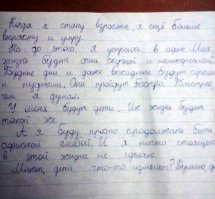 Когда я стану взрослым, я ещё больше
вырасту и умру.
Но до этого я устроюсь в офис. Моя
жизнь будет очень скучной и монотонной.
Будние дни и даже выходные будут серыми
и нудными. Они пройдут быстро. Быстрее,
чем я думал.
У меня будут дети. Их жизнь будет
такой же.
А я буду просто продолжать быть
офисной амёбой. И я ничего стоящего
в этой жизни не сделаю.
Может, дети что-то изменят? Думаю, да